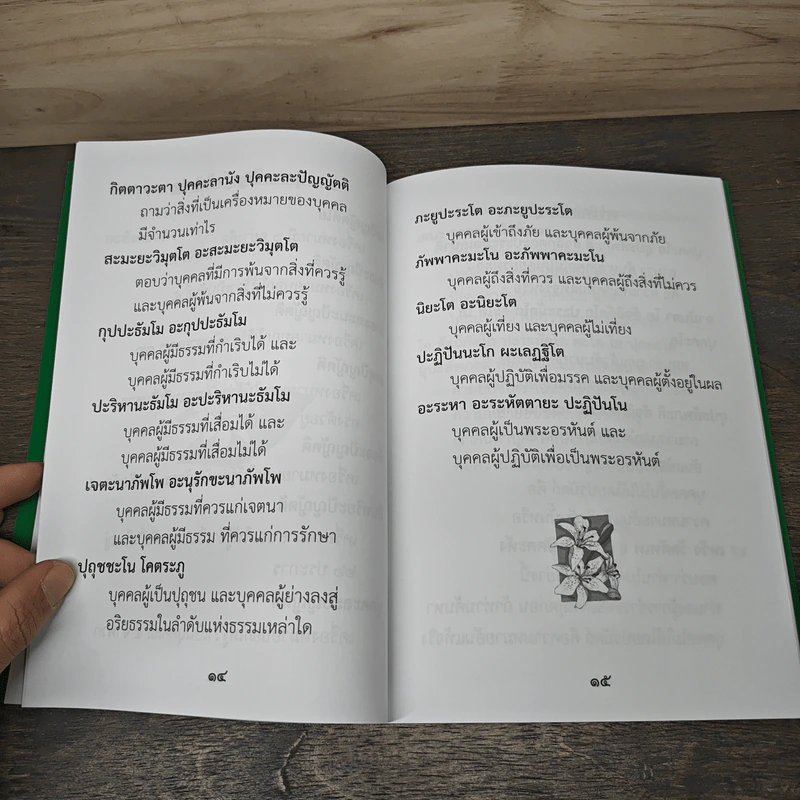 กิตตาวะตา ปุคคะลานัง ปุคคะละปัญญัตติ
ถามว่าสิ่งที่เป็นเครื่องหมายของบุคคล
มีจำนวนเท่าไร
สะมะยะวิมุตโต อะสะมะยะวิมุตโต
ตอบว่าบุคคลที่มีการพ้นจากสิ่งที่ควรรู้
และบุคคลผู้พ้นจากสิ่งที่ไม่ควรรู้
กุปปะธัมโม อะกุปปะธัมโม
บุคคลผู้มีธรรมที่กำเริบได้ และ
บุคคลผู้มีธรรมที่กำเริบไม่ได้
ปะริหานะธัมโม อะปะริหานะธัมโม
บุคคลผู้มีธรรมที่เสื่อมได้ และ
บุคคลผู้มีธรรมที่เสื่อมไม่ได้
เจตะนาภัพโพ อะนุรักขะนาภัพโพ
บุคคลผู้มีธรรมที่ควรแก่เจตนา
และบุคคลผู้มีธรรม ที่ควรแก่การรักษา
ปุถุชชะโน โคตระภู
บุคคลผู้เป็นปุถุชน และบุคคลผู้ย่างลงสู่
อริยธรรมในลำดับแห่งธรรมเหล่าใด
๑๔
ภะยูปะระโต อะภะยูปะระโต
บุคคลผู้เข้าถึงภัย และบุคคลผู้พ้นจากภัย
ภัพพาคะมะโน อะภัพพาคะมะโน
บุคคลผู้ถึงสิ่งที่ควร และบุคคลผู้ถึงสิ่งที่ไม่ควร
นิยะโต อะนิยะโต
บุคคลผู้เที่ยง และบุคคลผู้ไม่เที่ยง
ปะฏิปันนะโก ผะเลฏฐิโต
บุคคลผู้ปฏิบัติเพื่อมรรค และบุคคลผู้ตั้งอยู่ในผล
อะระหา อะระหัตตายะ ปะฏิปันโน
บุคคลผู้เป็นพระอรหันต์ และ
บุคคลผู้ปฏิบัติเพื่อเป็นพระอรหันต์
๑๕